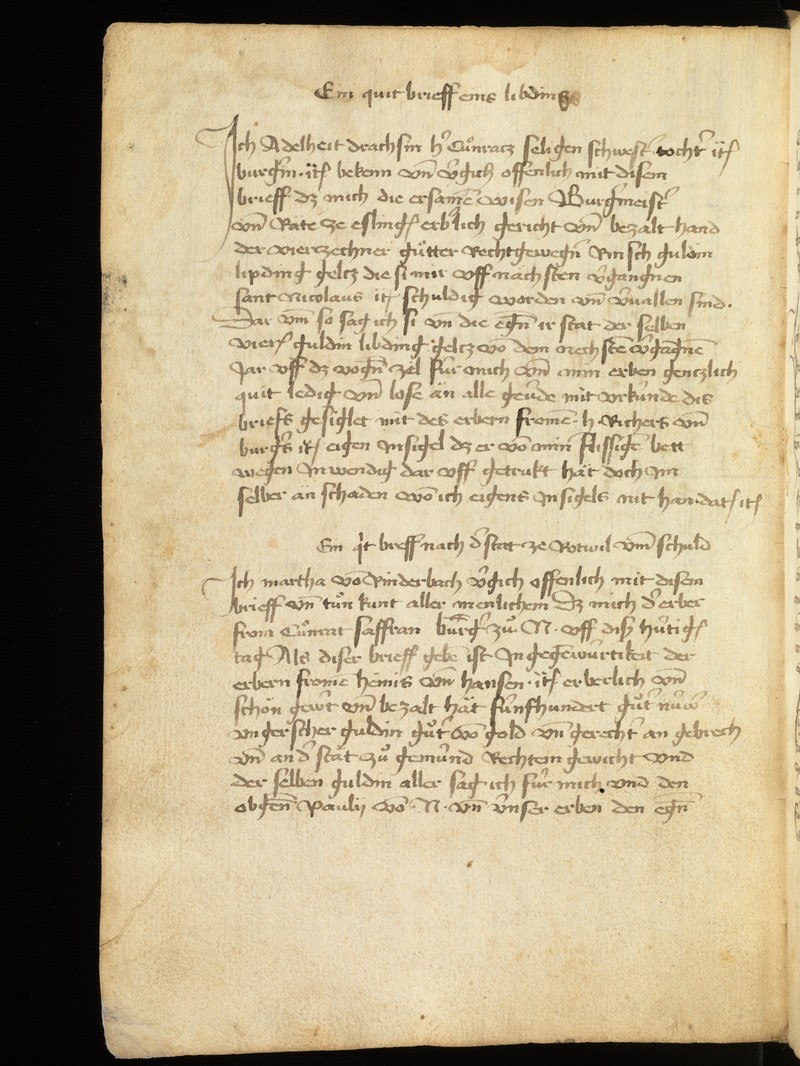 Ein quit brieff eins libdings
Ich Adelheit drachsin h' Cůnratz seligen schwest' tocht' itz
burg'in · itz bekenn vnd v'gich offenlich mit disem
brieff dz mich die ersamen wisen Burg'meist'
vnd Rate ze esling' erb'lich gericht vnd bezalt hand
der vierzechner gůtter Rechtgewegn' Rinsch guldin
lipding geltz die si mir vff nachsten v'gangnen
sant Nicolaus itz schuldig worden vnd v'uallen sind.
Dar vm so sag ich si vn die egn' ir stat der selben
vierz guldin libding geltz vo dem nechste v'gagne
Jar vff dz vogn' zel für mich vnd min erben gentzlich
quit ledig vnd lose än alle geu'de mit vrkunde dis
briefs gesiglet mit des erbern frome h· Richers vnd
burg's itz eigen Insigel dz er vo min flissige bett
wegen Inwendig dar vff getrukt hät doch Im
selber an schaden wo ich eigens Insigels nit han · dat' itz
Ein q't breff nach d' stat ze Rotwil vm schuld
Ich martha vo Rinderbach v'gich offenlich mit disem
brieff vn tůn kunt aller menlichem Dz mich d' erber
from Cůnrat saffran burg' zů · N · vff diß hütig'
tag Als diser brieff gebe ist In gegewürtikeit der
erbern frome heinis vnd hansen · itz erberlich vnd
schön gew't vnd bezalt hät fünfhundert gůt' nüw'
vngerscher guldin gůt' vo gold vn gerecht' an gebrech
vn an d' stat zů gemünd Rechtem gewicht vnd
der selben guldin aller sag ich für mich vnd den
obgen' Paulij vo · N · vn vnser erben den egn'